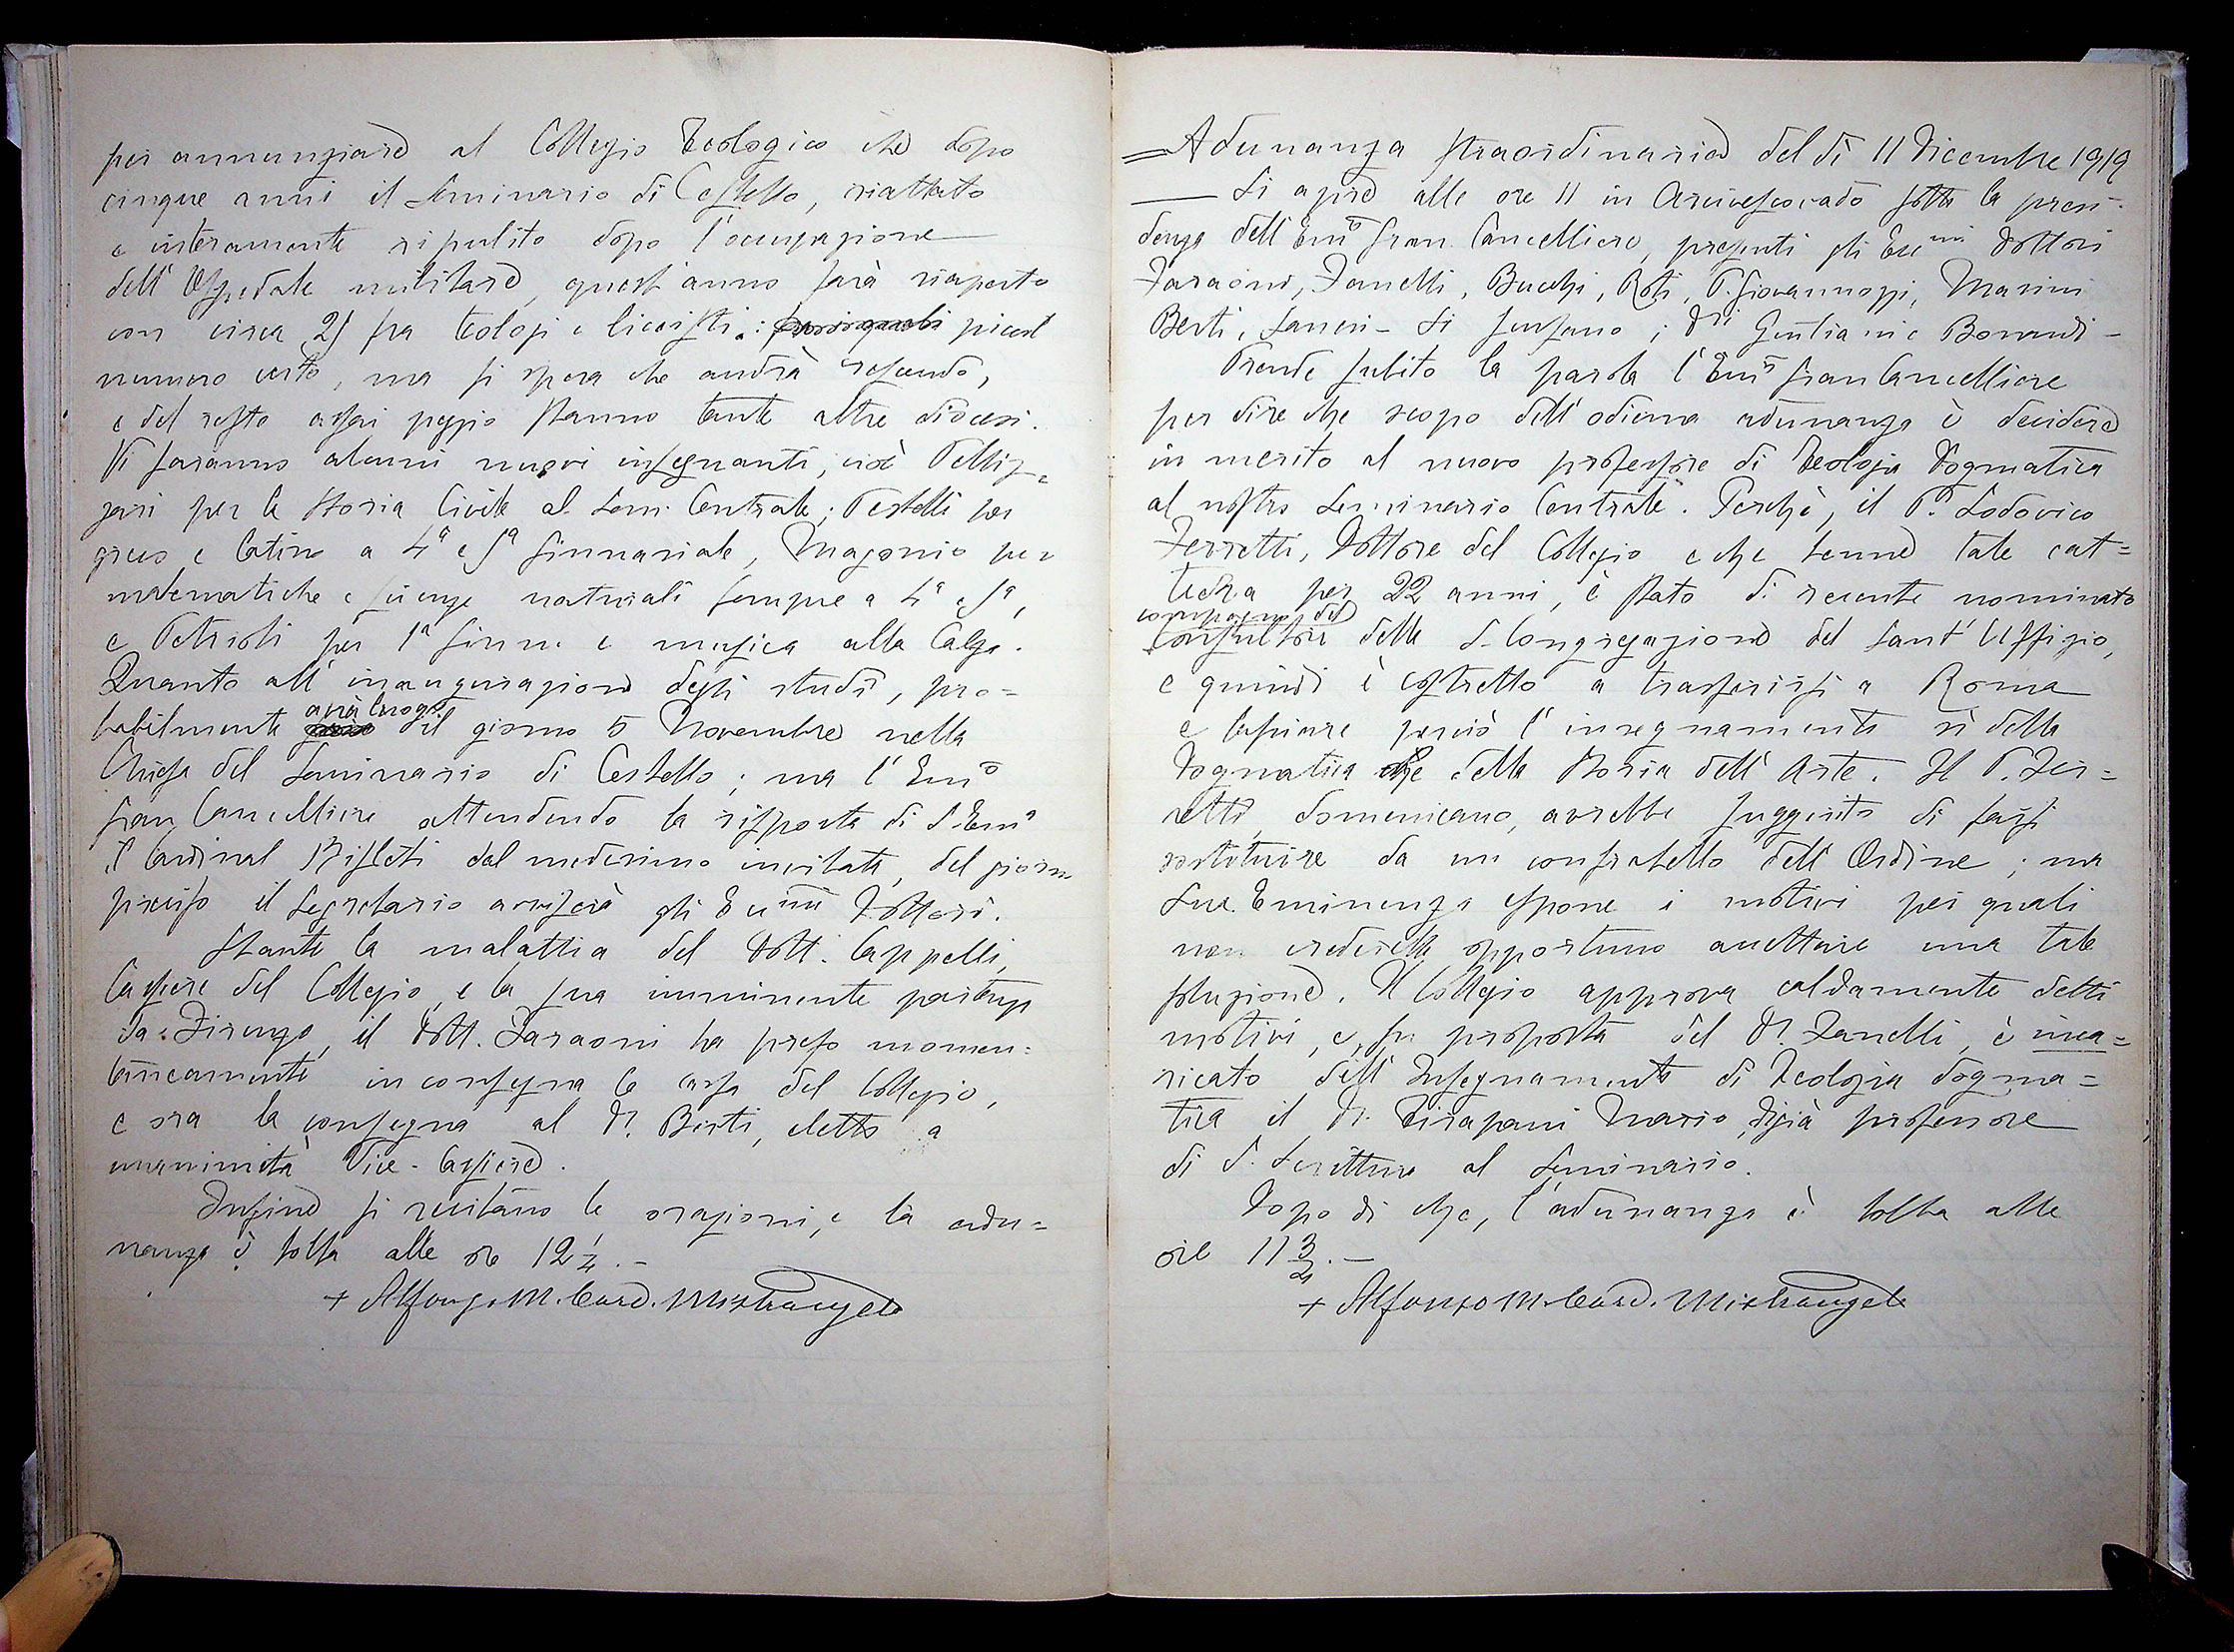 per annunziare al Collegio Teologico che dopo
cinque anni il Seminario di Cestello, riattato
e interamente ripulito dopo l'occupazione
dell'Ospedale militare, quest'anno sarà riaperto
con circa 25 fra teologi e liceisti: piccol
numero certo, ma si spera che andrà crescendo,
e del resto assai peggio stanno tante altre diocesi.
Vi saranno alcuni nuovi insegnanti, cioè Pelliz=
zari per la Storia Civile al Sem. Centrale; Pestelli per
greco e latino a 4ª e 5ª ginnasiale, Magonio per
matematiche e scienze naturali sempre a 4ª e 5ª,
e Petrioli per 1ª ginn. e musica alla Calza.
Quanto all'inaugurazione degli studi, pro=
babilmente avrà luogo il giorno 5 Novembre nella
Chiesa del Seminario di Cestello; ma l'Emº
Gran Cancelliere attendendo la risposta di S. Emª
il Cardinal Bisleti dal medesimo invitato, del giorno
preciso il Segretario avviserà gli Ecc.mi Dottori.
Stante la malattia del Dott. Cappelli,
Cassiere del Collegio, e la sua imminente partenza
da Firenze, il Dott. Faraoni ha preso momen=
taneamente in consegna la cassa del Collegio,
e ora la consegna al Dr. Berti, eletto a
unanimità Vice-Cassiere.
Infine si recitano le orazioni, e la adu=
nanza è tolta alle ore 12 1/4.-
+ Alfonso M. Card. Mistrangelo
=Adunanza straordinaria del dì 11 Dicembre 1919
— Si aprì alle ore 11 in Arcivescovado sotto la presi-
denza dell'Emº Gran Cancelliere, presenti gli Ecc.mi Dottori
Faraoni, Zanelli, Bucchi, Roti, P. Giovannozzi, Marini
Berti, Sanesi - Si scusano i Dri Giulianie Bonardi -
Prende subito la parola l'Emº Gran Cancelliere
per dire che scopo dell'odierna adunanza è decidere
in merito al nuovo professore di Teologia Dogmatica
al nostro Seminario Centrale. Perchè, il P. Lodovico
Ferretti, Dottore del Collegio e che tenne tale cat=
tedra per 22 anni, è stato di recente nominato
compagno del
Consultore della S. Congregazione del Sant'Uffizio,
e quindi è costretto a trasferirsi a Roma
e lasciare perciò l'insegnamento sì della
Dogmatica che della Storia dell'Arte. Il P. Fer=
retti, domenicano, avrebbe suggerito di farsi
sostituire da un confratello dell'Ordine; ma
Sua Eminenza espone i motivi pei quali
non crederebbe opportuno accettare una tale
soluzione. Il Collegio approva caldamente detti
motivi, e, su proposta del Dr. Zanelli, è inca=
ricato dell'Insegnamento di Teologia dogma=
tica il Dr. Tirapani Mario, digià professore
di S. Scrittura al Seminario.
Dopo di che, l'adunanza è tolta alle
ore 11 3/4.-
+ Alfonso M. Card. Mistrangelo